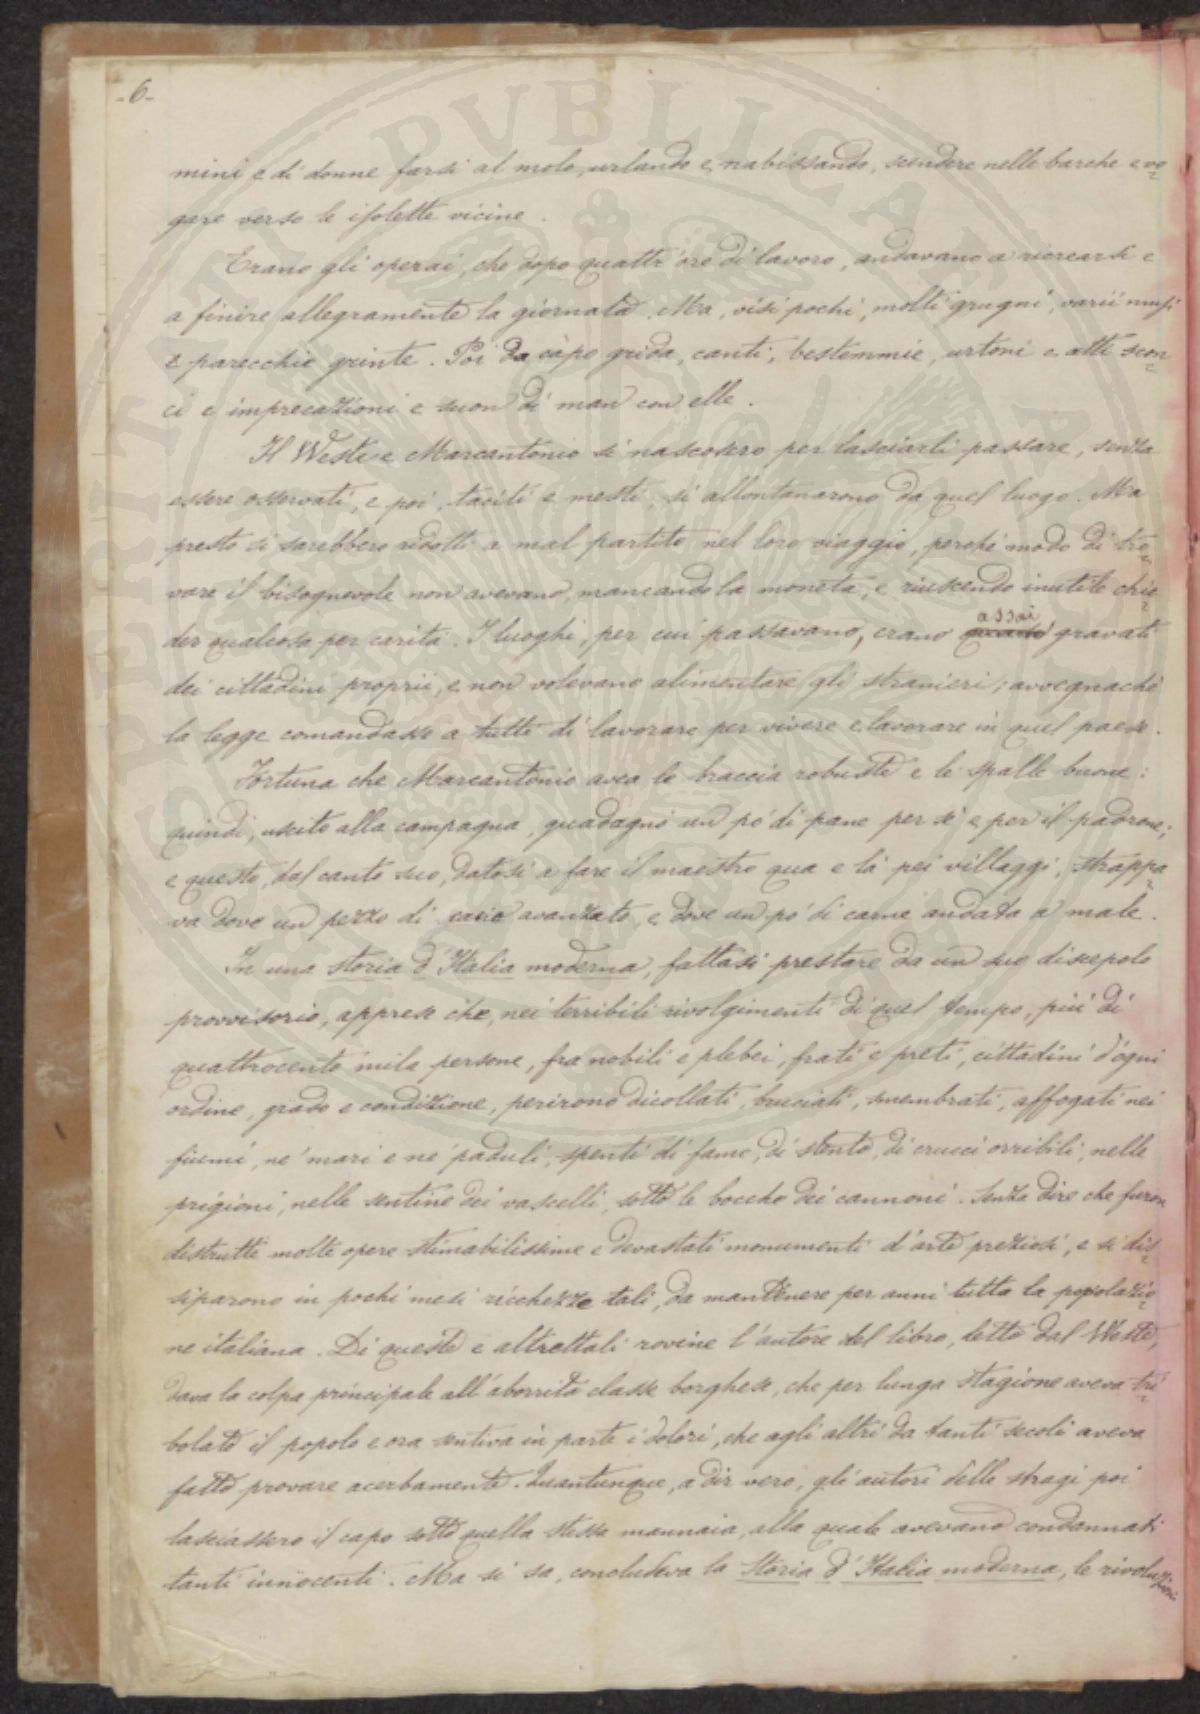 -6-
mini e di donne farsi al molo, urlando e nabissando, scendere nelle barche e vo=
gare verso le isolette vicine.
Erano gli operai, che dopo quattr'ore di lavoro, andavano a ricrearsi e
a finire allegramente la giornata. Ma, visi pochi, molti grugni, varii musi
e parecchie grinte. Poi da càpo grida, canti, bestemmie, urtoni e atti scon=
ci e imprecazioni e suon di man con elle.
Il West e Marcantonio si nascosero per lasciarli passare, senza
essere osservati, e poi, taciti e mesti, si allontanarono da quel luogo. Ma
presto si sarebbero ridotti a mal partito nel loro viaggio, perché modo di tro=
vare il bisognevole non avevano, mancando la moneta, e riuscendo inutile chie=
der qualcosa per carità. I luoghi, per cui passavano, erano assai gravati
dei cittadini proprii, e non volevano alimentare gli stranieri; avvegnaché
la legge comandasse a tutti di lavorare per vivere e lavorare in quel paese.
Fortuna che Marcantonio avea le braccia robuste e le spalle buone:
quindi, uscito alla campagna, guadagnò un po' di pane per sé e per il padrone;
e questo, dal canto suo, datosi a fare il maestro qua e là pei villaggi, strappa=
va dove un pezzo di cacio avanzato, e dove un po' di carne andata a male.
In una storia d'Italia moderna, fattasi prestare da un suo discepolo
provvisorio, apprese che, nei terribili rivolgimenti di quel tempo, più di
quattrocento mila persone, fra nobili e plebei, frati e preti, cittadini d'ogni
ordine, grado e condizione, perirono dicollati, bruciati, smembrati, affogati nei
fiumi, ne' mari e ne' paduli, spenti di fame, di stento, di crucci orribili, nelle
prigioni, nelle sentine dei vascelli, sotto le bocche dei cannoni. Senza dire che furon
distrutte molte opere stimabilissime e devastati monumenti d'arte preziosi, e si dis=
siparono in pochi mesi ricchezze tali, da mantenere per anni tutta la popolazio=
ne italiana. Di queste e altrettali rovine l'autore del libro, letto dal West,
dava la colpa principale all'aborrita classe borghese, che per lunga stagione aveva tri=
bolato il popolo e ora sentiva in parte i dolori, che agli altri da tanti secoli aveva
fatto provare acerbamente. Quantunque, a dir vero, gli autori delle stragi poi
lasciassero il capo sotto quella stessa mannaia, alla quale avevano condannati
tanti innocenti. Ma si sa, concludeva la Storia d'Italia moderna, le rivoluzioni